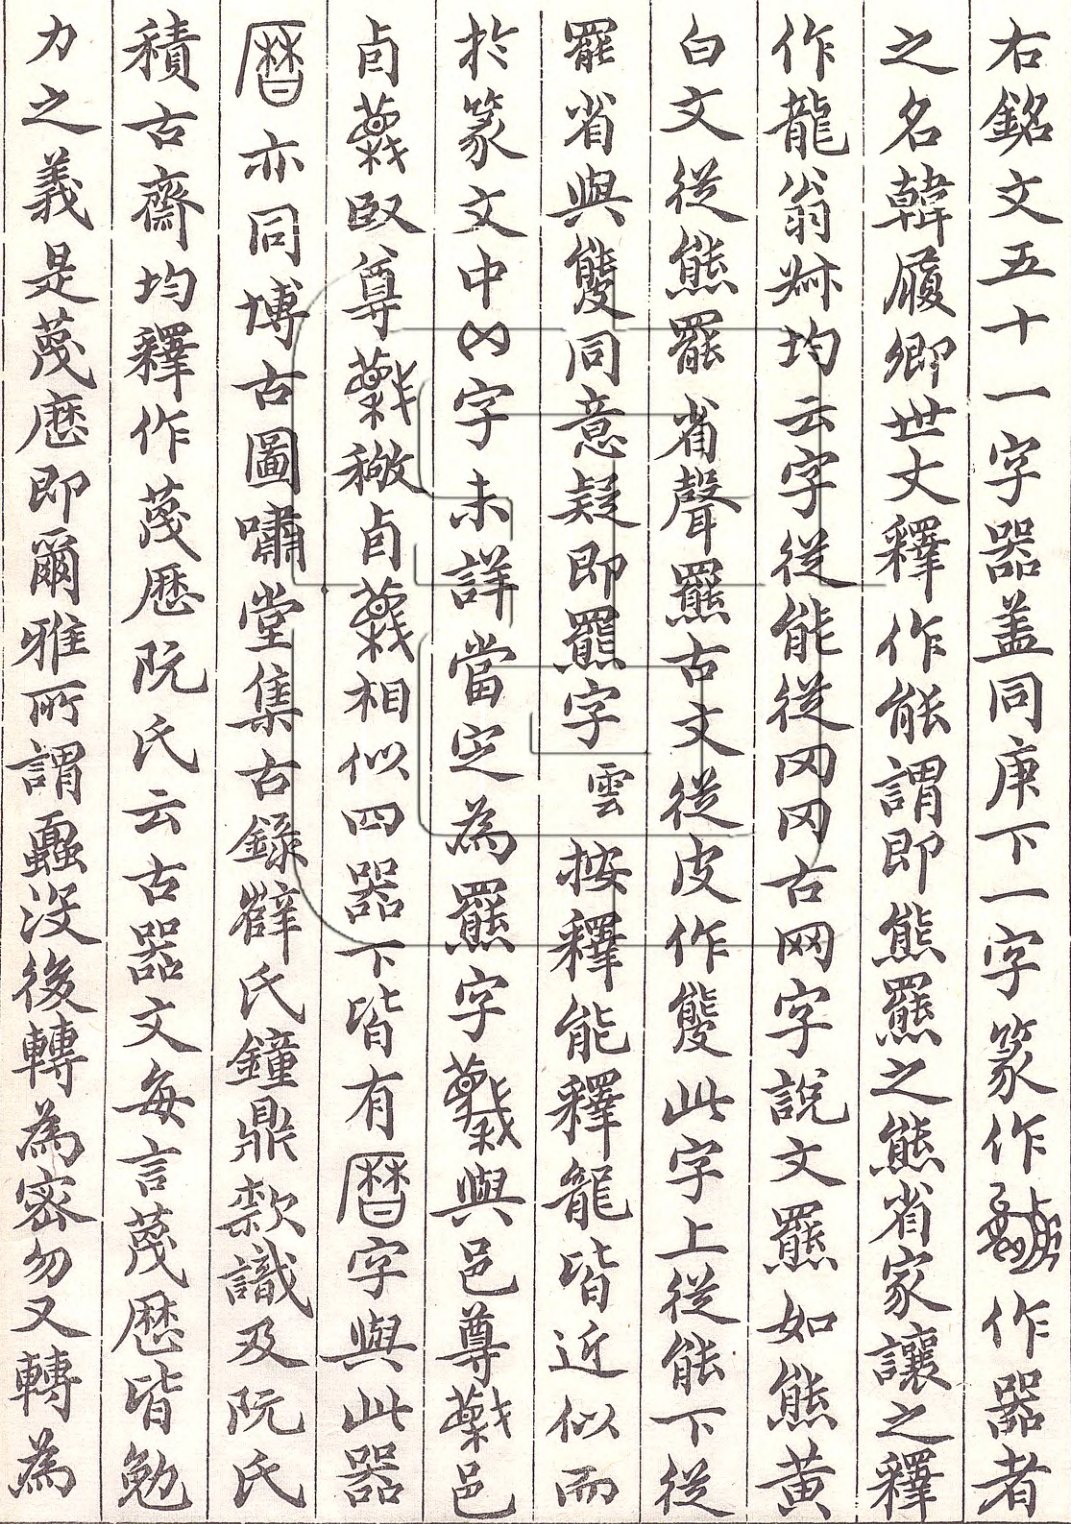 右銘文五十一字器盖同庚下一字篆作作器者
之名韓履卿世丈釋作能謂即熊羆之熊省家讓之釋
作龍翁尗均云字從能從冈冈古网字說文羆如熊黃
白文從熊罷省聲羆古文從皮作䯱此字上從能下從
罷省與䯱同意疑即羆字雲按釋能釋龍皆近似而
於篆文中字未詳當定為羆字與邑尊邑
卣臤尊稵卣相似四器下皆有字與此器
亦同博古圖嘯堂集古錄薛氏鐘鼎款識及阮氏
積古齋均釋作蔑歷阮氏云古器文每言蔑歷皆勉
力之義是蔑歷即爾雅所謂蠠没後轉為密勿又轉為